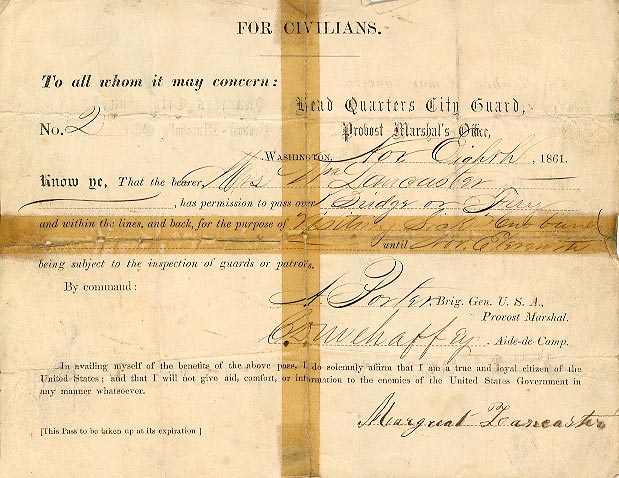 FOR CIVILIANS.
To all whom it may concern:
Head Quarters City Guard,
No. 2
Provost Marshal's Office,
WASHINGTON, Nov Eighth, 1861.
Know ye, That the bearer, Mrs Wm Lancaster
, has permission to pass over Bridge or Ferry
and within the lines, and back, for the purpose of Visiting Sick
until Nov.
being subject to the inspection of guards or patrols.
By command:
A. Porter, Brig. Gen. U. S. A.,
Provost Marshal.
Aide-de-Camp.
In availing myself of the benefits of the above pass, I do solemnly affirm that I am a true and loyal citizen of the
United States; and that I will not give aid, comfort, or information to the enemies of the United States Government in
any manner whatsoever.
Margreat Lancaster
[This Pass to be taken up at its expiration ]